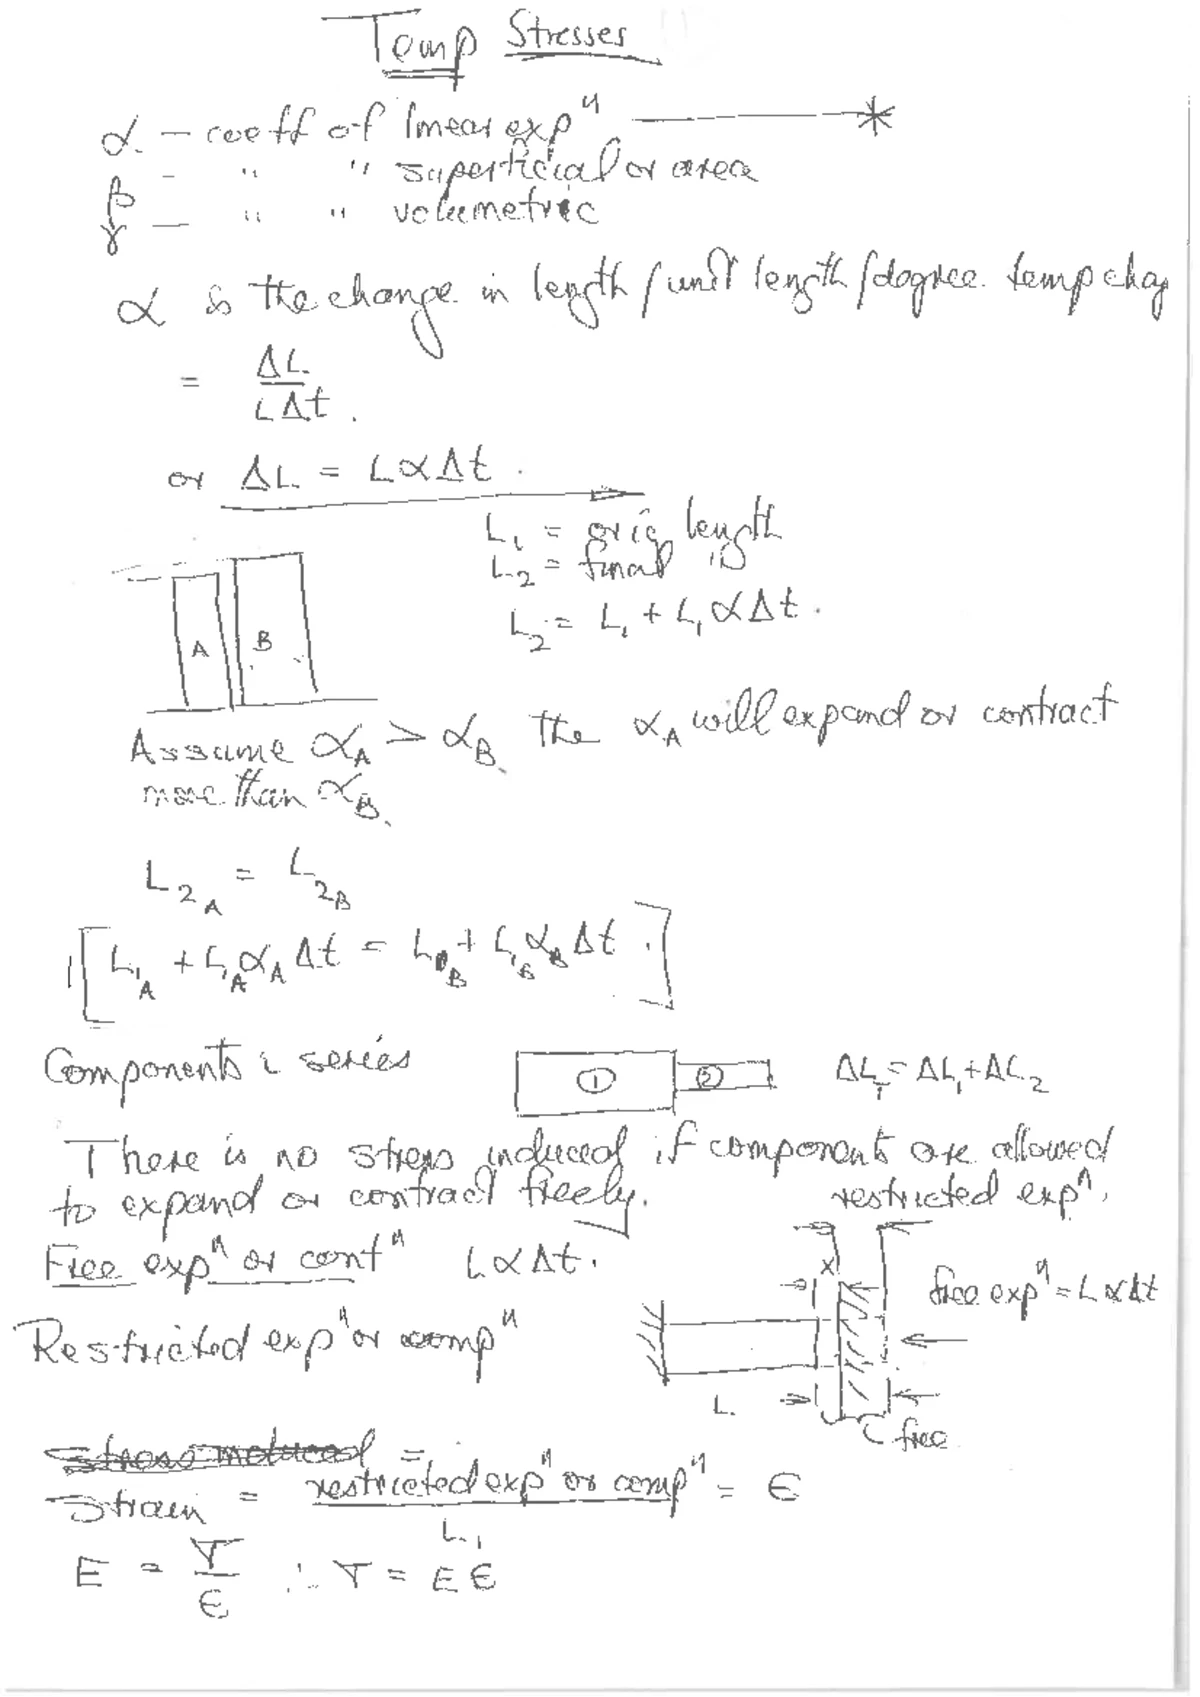 Temp Stresses
α – coeff of linear expⁿ ——— *
β – " " superficial or area
γ – " " volumetric
α is the change in length / unit length / degree temp
= ΔL / LΔt .
or ΔL = LαΔt .
L₁ = orig length
L₂ = final "
L₂ = L₁ + L₁αΔt .
A B
Assume α_A > α_B the α_A will expand or contract
more than α_B.
L₂_A = L₂_B
[L₁_A + L₁_A α_A Δt = L₁_B + L₁_B α_B Δt .]
Components i series ① ② ΔL_T = ΔL₁ + ΔL₂
There is no stress induced if components are allowed
to expand or contract freely.
restricted expⁿ.
Free expⁿ or contⁿ LαΔt.
x
free expⁿ = LαΔt
Restricted expⁿ or compⁿ
L.
free
=
Strain = restricted expⁿ or compⁿ / L₁ = ϵ
E = σ / ϵ ∴ σ = Eϵ